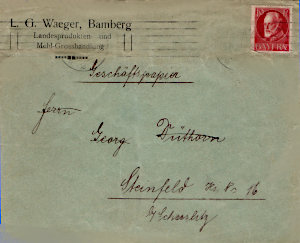 L. G. Waeger, Bamberg
Landesprodukten- und
Mehl-Grosshandlung
BAYERN
Geschäftspapier
Herrn
Georg Düthorn
Steinfeld Hs. Nr. 16
b/Schesslitz